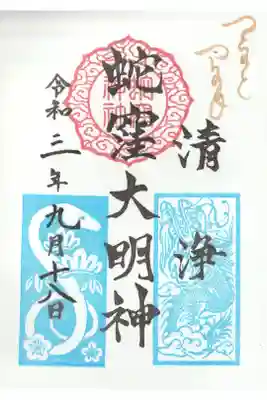 清浄
蛇窪大明神
令和三年九月十八日